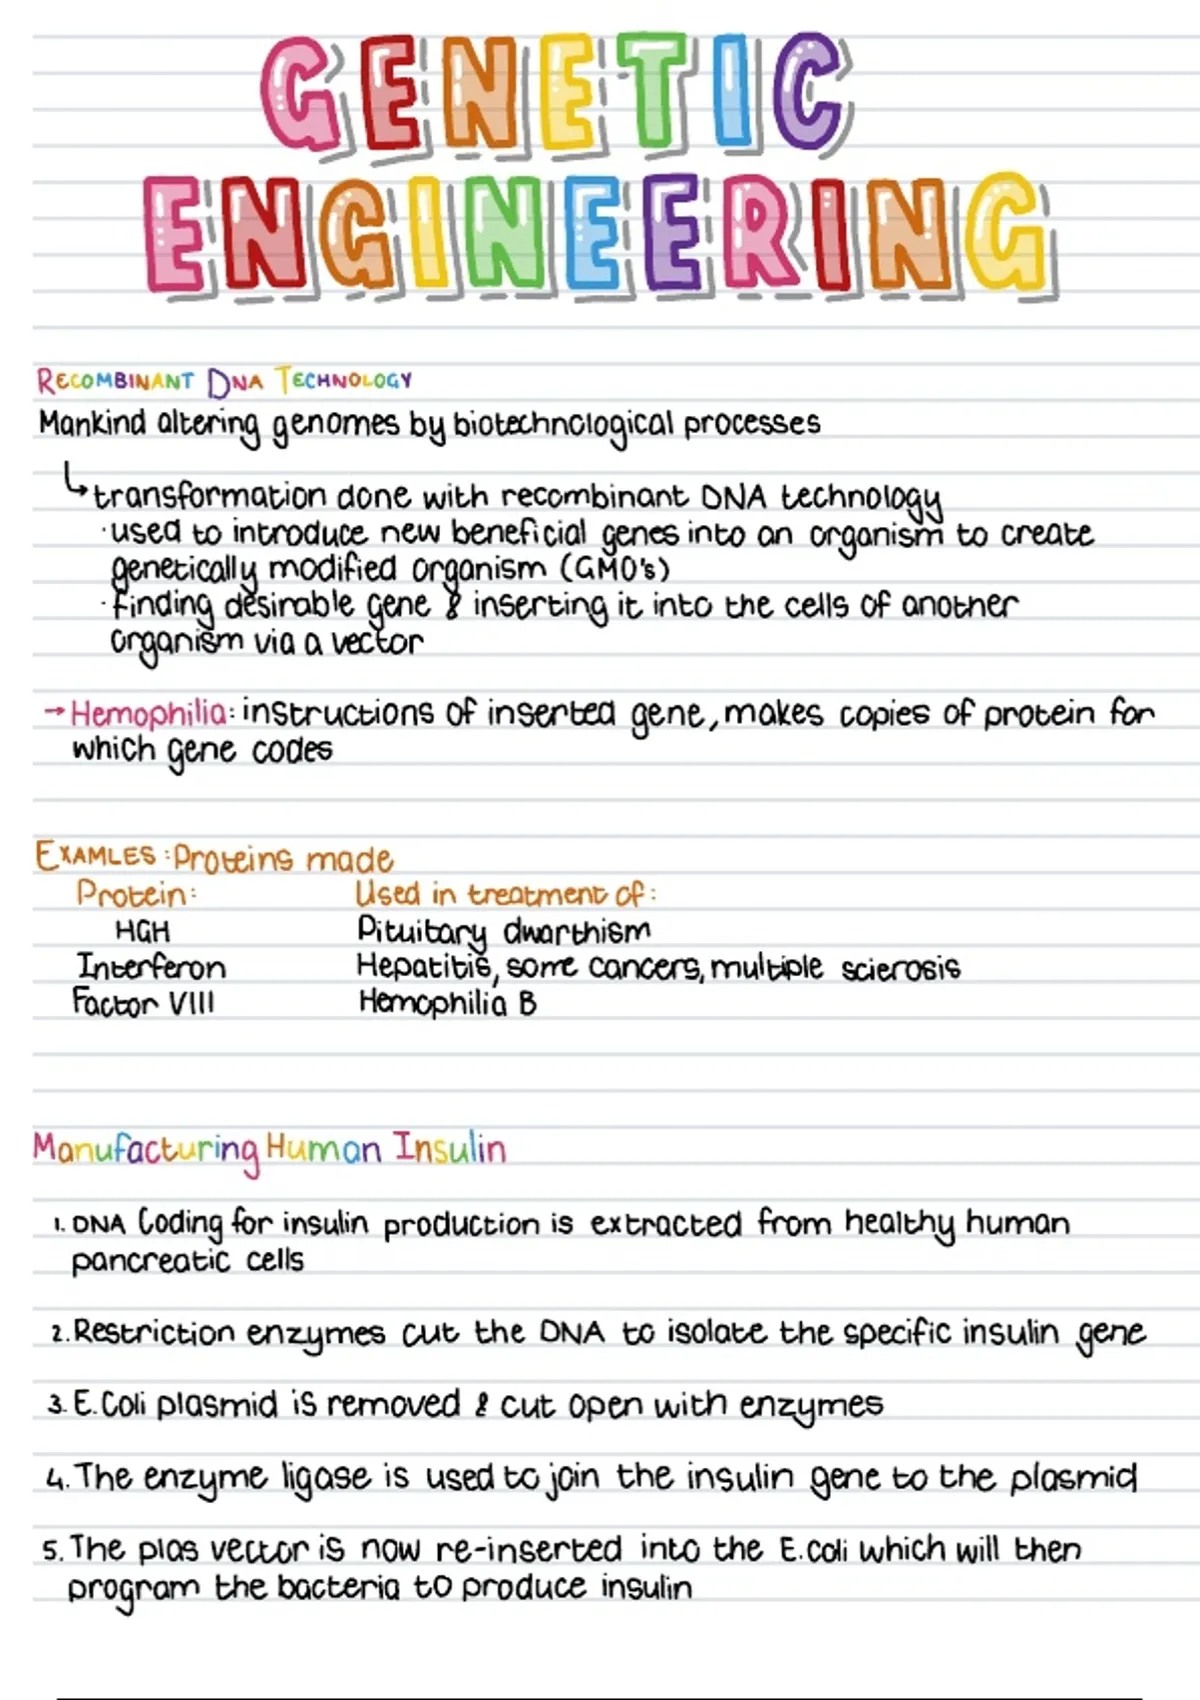 GENETIC
ENGINEERING
RECOMBINANT DNA TECHNOLOGY
Mankind altering genomes by biotechnological processes
↳ transformation done with recombinant DNA technology
· used to introduce new beneficial genes into an organism to create
genetically modified organism (GMO's)
· finding desirable gene & inserting it into the cells of another
organism via a vector
→ Hemophilia: instructions of inserted gene, makes copies of protein for
which gene codes
EXAMLES: Proteins made
Protein: Used in treatment of:
HGH Pituitary dwarthism
Interferon Hepatitis, some cancers, multiple scierosis
Factor VIII Hemophilia B
Manufacturing Human Insulin
1. DNA Coding for insulin production is extracted from healthy human
pancreatic cells
2. Restriction enzymes cut the DNA to isolate the specific insulin gene
3. E.Coli plasmid is removed & cut open with enzymes
4. The enzyme ligase is used to join the insulin gene to the plasmid
5. The plas vector is now re-inserted into the E.coli which will then
program the bacteria to produce insulin